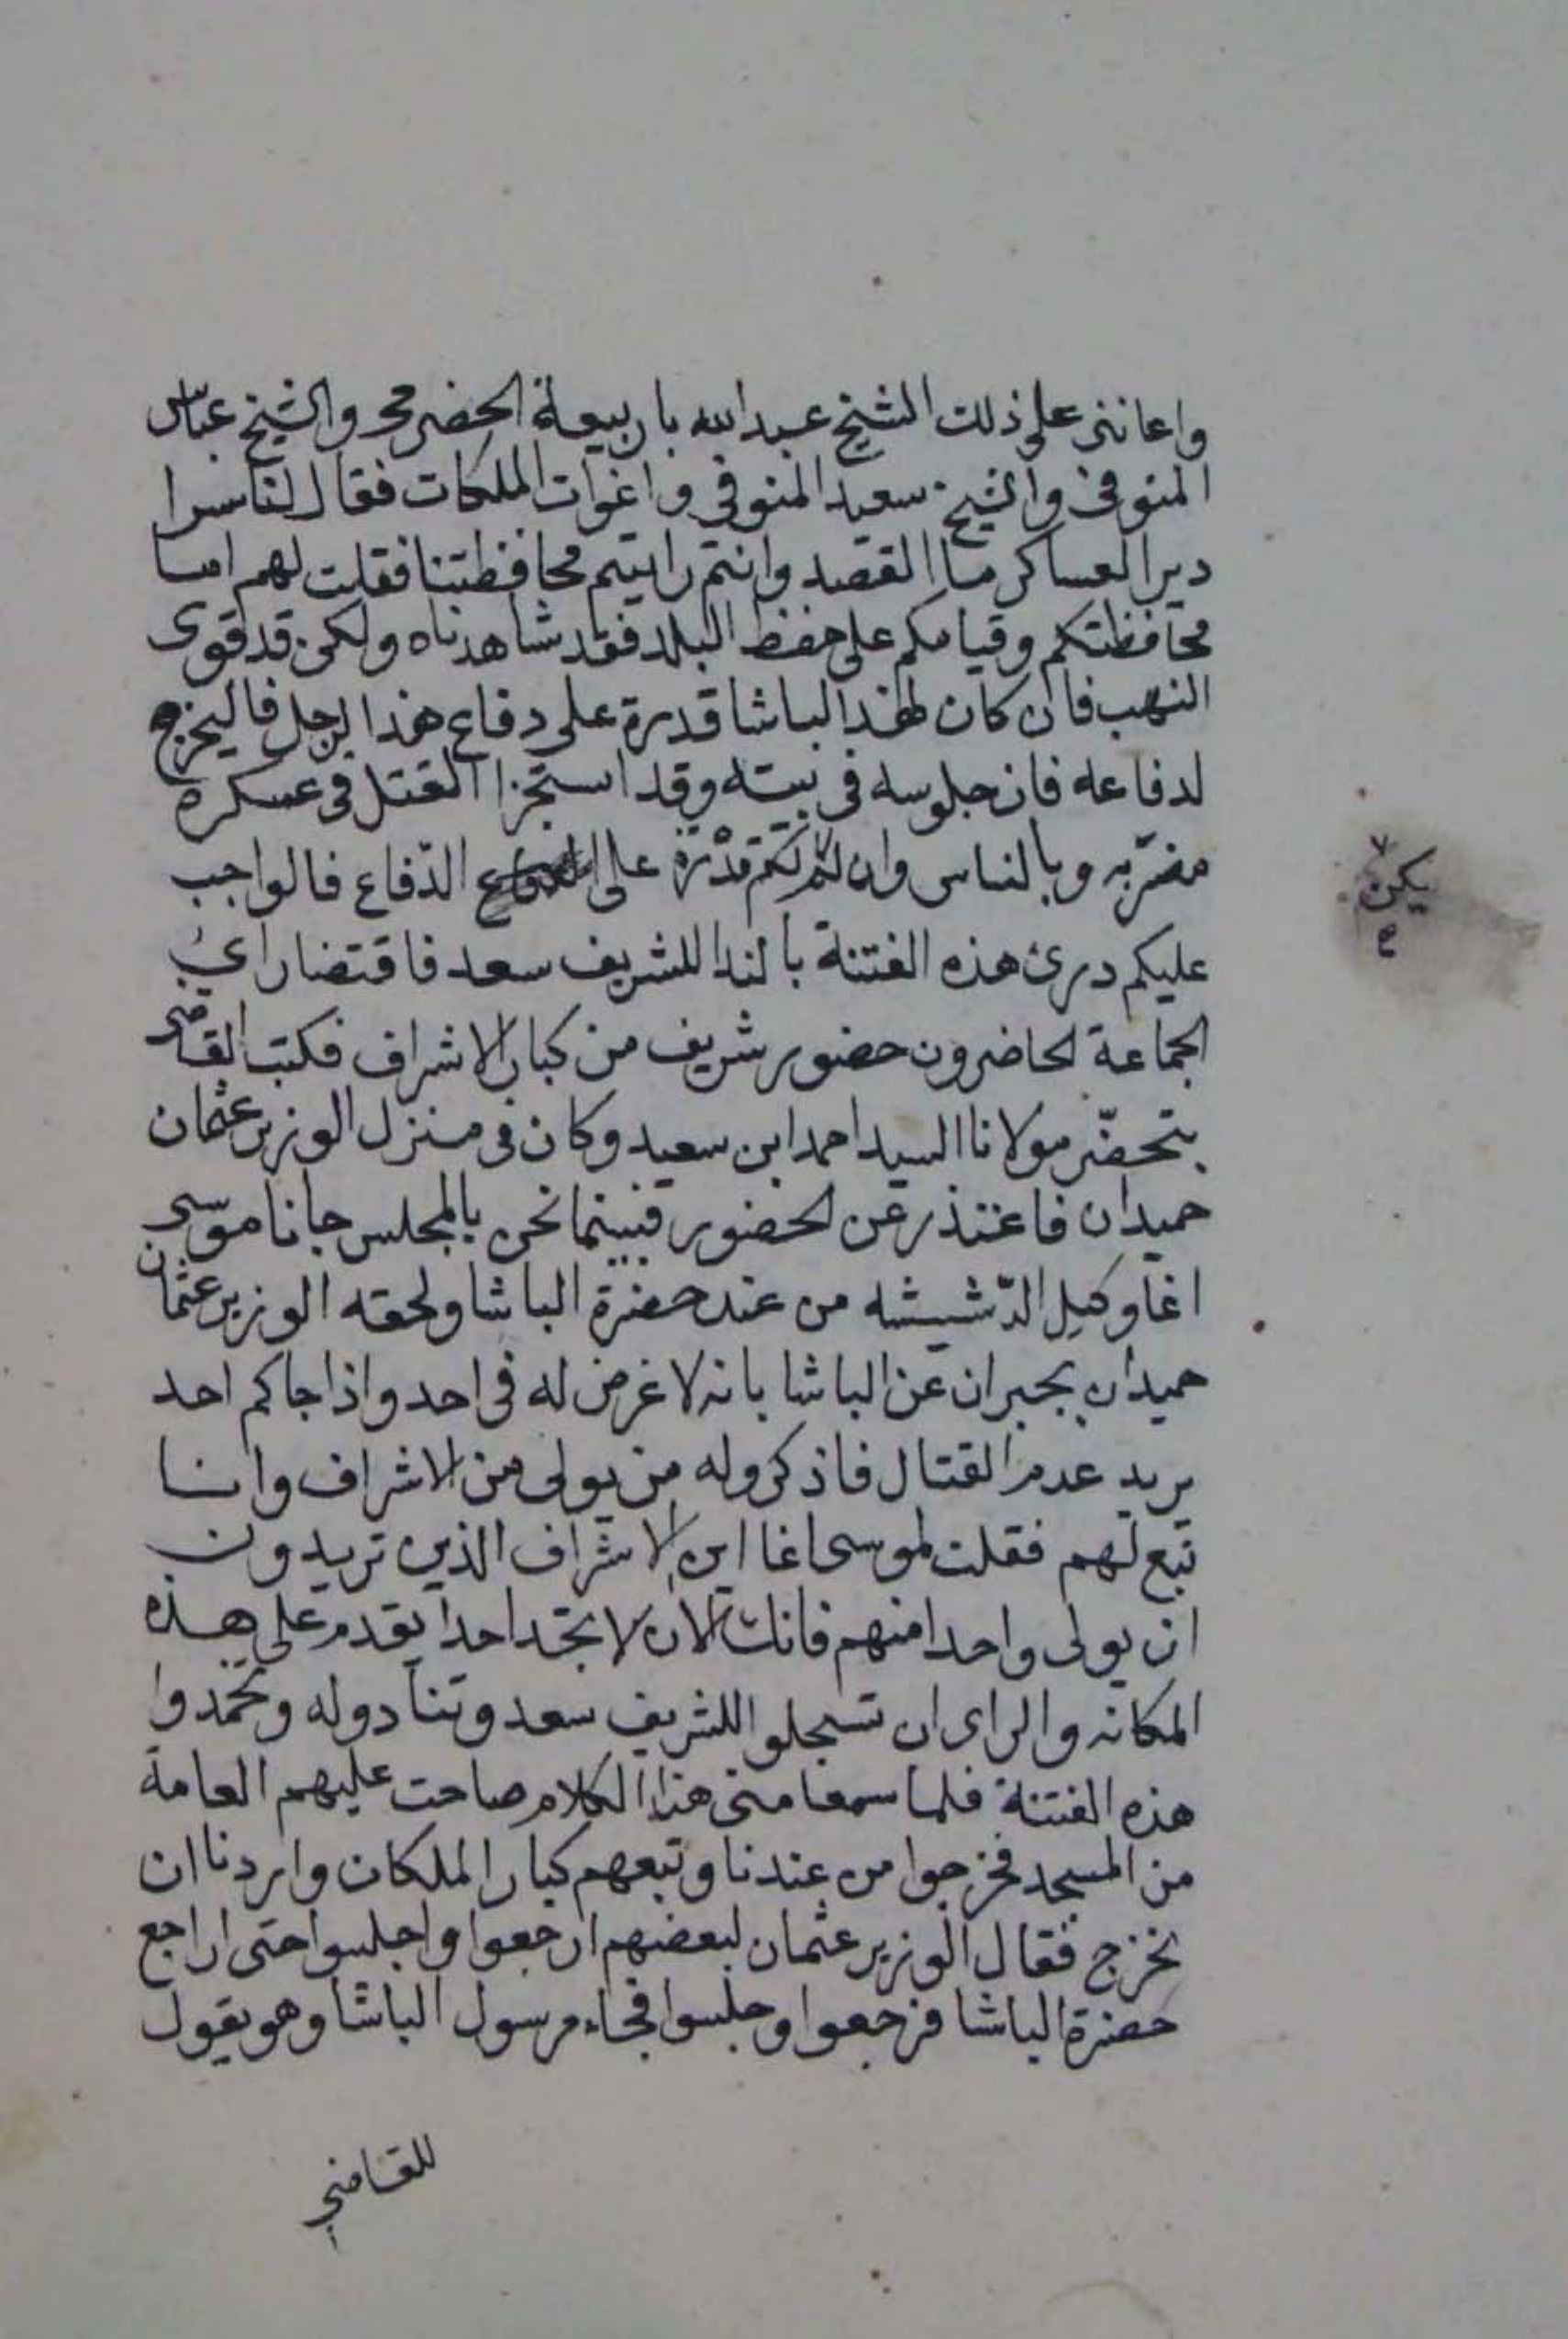 واعانني على ذلك الشيخ عبد الله باربيعة الحضرمي والشيخ عباس
المنوفي والشيخ سعيد المنوفي واغوات الملكات فقال لنا سرا
دير العساكر ما القصد وانتم رايتم محافظتنا فقلت لهم اما
محافظتكم وقيامكم على حفظ البلد فقد شاهدناه ولكن قد قوى
النهب فان كان لهذا الباشا قدرة على دفاع هذا الرجل فاليخرج
لدفاعه فان جلوسه في بيته وقد استجزا القتل في عسكره
مضر به وبالناس وان لم لكم قدرة على الدفاع فالواجب
يكن
عليكم درئ هذه الفتنة بالندا للشريف سعد فاقتضا راي
الجماعة الحاضرون حضور شريف من كبار الاشراف فكتب القاضي
يتحضر مولانا السيد احمد ابن سعيد وكان في منزل الوزير عثمان
حميدان فاعتذر عن الحضور فبينما نحن بالمجلس جانا موسى
اغا وكيل الدشيشه من عند حضرة الباشا ولحقه الوزير عثمان
حميدان يخبران عن الباشا بانه لا غرض له في احد واذا جاكم احد
يريد عدم القتال فاذكروا له من يولى من الاشراف وانا
تبع لهم فقلت لموسى اغا اين الاشراف الذين تريدون
ان يولى واحدا منهم فانك الان لا تجد احدا يقدم على هذه
المكانه والراى ان تسجلوا للشريف سعد وتنادوا له وتخمدوا
هذه الفتنة فلما سمعا منى هذا الكلام صاحت عليهم العامة
من المسجد فخرجوا من عندنا وتبعهم كبار الملكان واردنا ان
نخرج فقال الوزير عثمان لبعضهم ارجعوا واجلسوا حتى اراجع
حضرة الباشا فرجعوا وجلسوا فجاء رسول الباشا وهو يقول
للقاضي